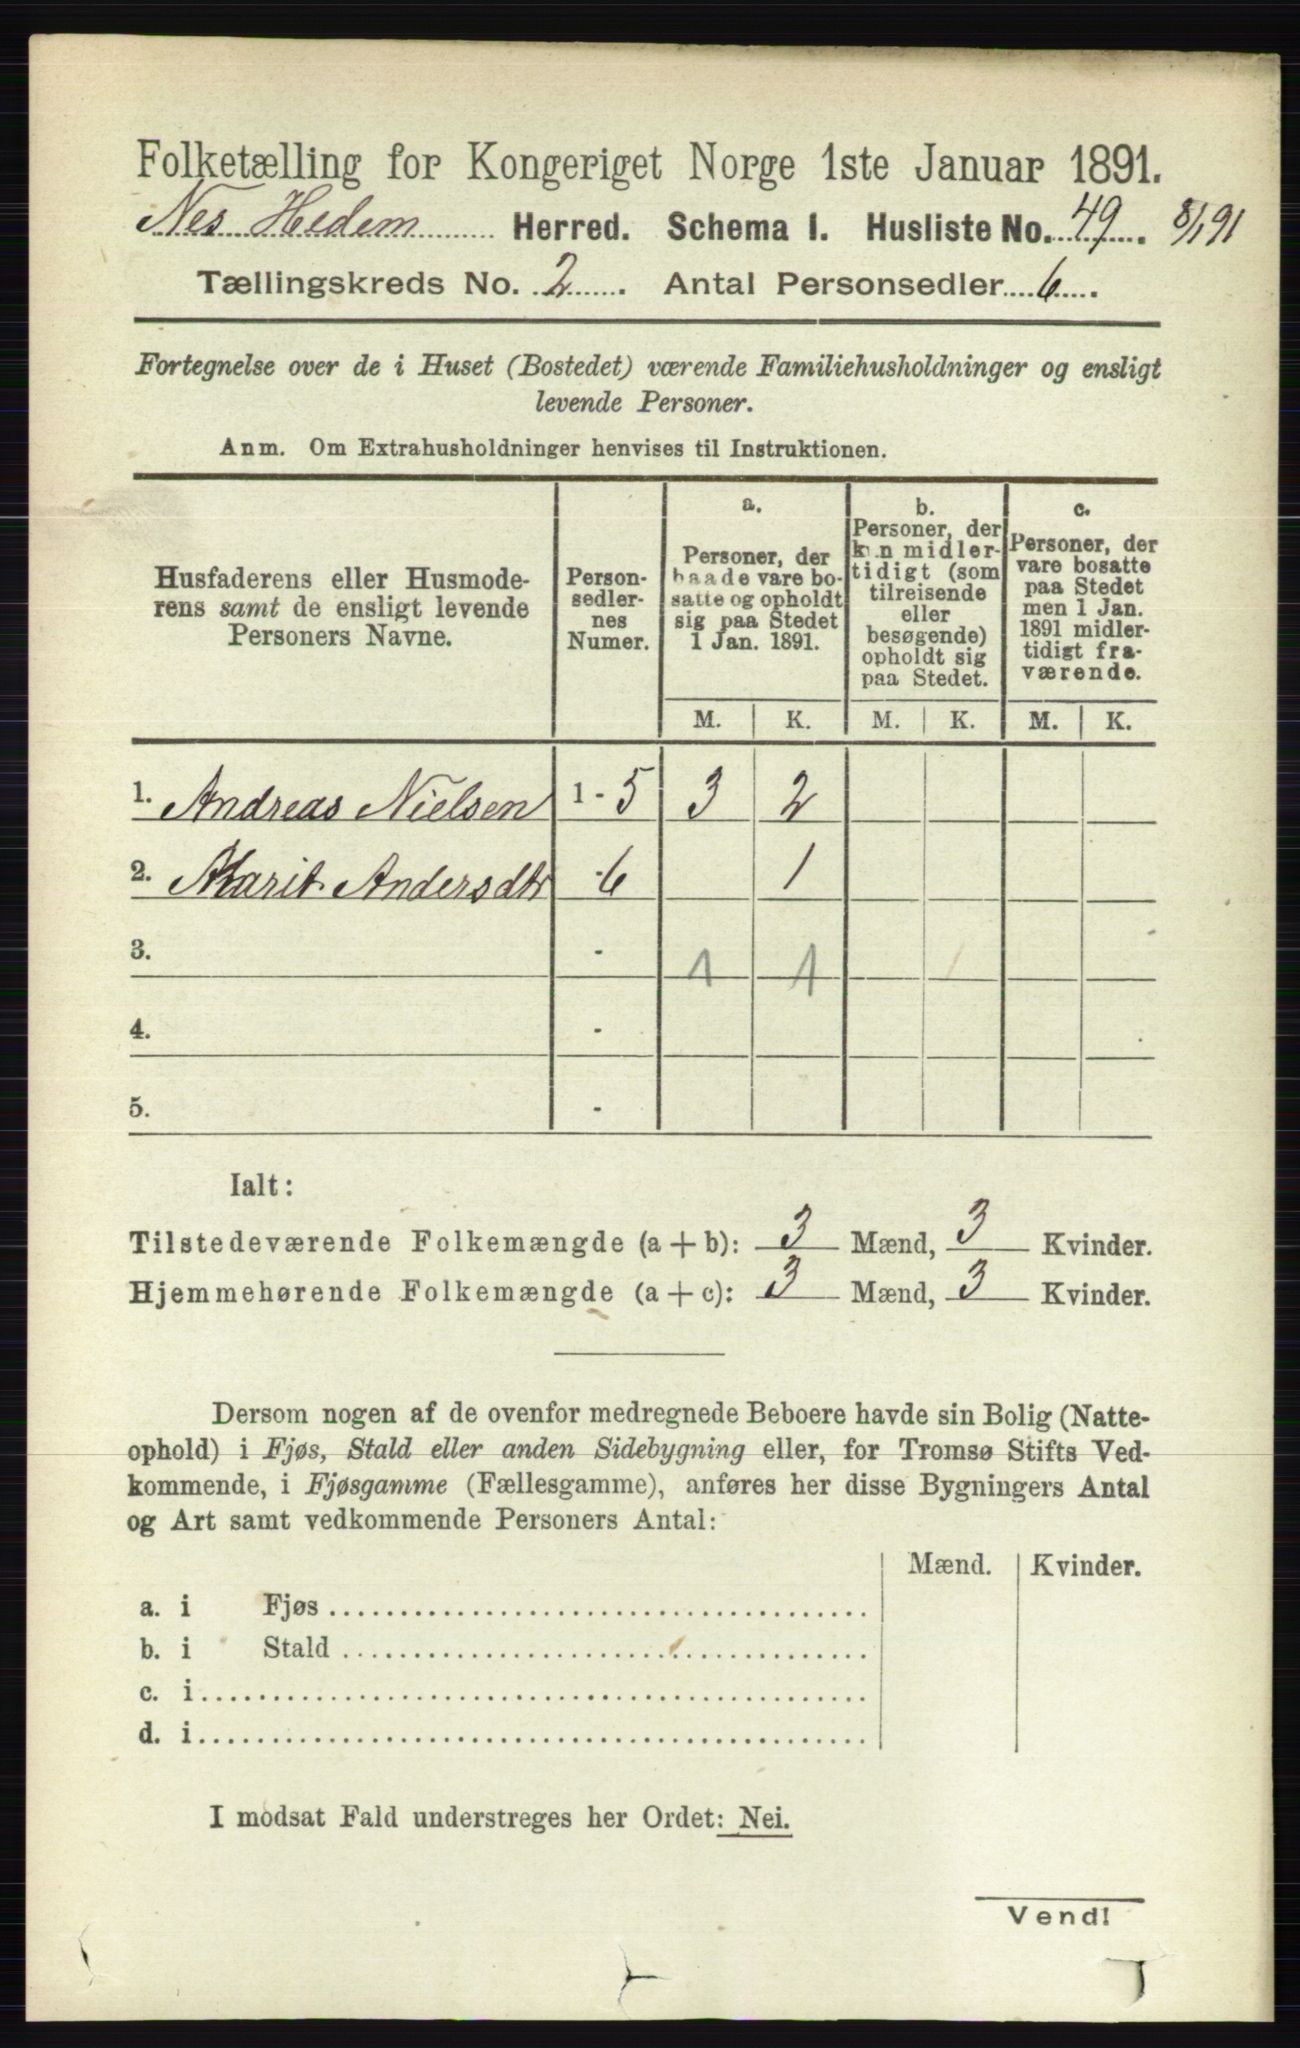 Folketælling for Kongeriget Norge 1ste Januar 1891.
Nes Hedem Herred. Schema I. Husliste No. 49. 8/1 91
Tællingskreds No. 2. Antal Personsedler 6.
Fortegnelse over de i Huset (Bostedet) værende Familiehusholdninger og ensligt
levende Personer.
Anm. Om Extrahusholdninger henvises til Instruktionen.
Husfaderens eller Husmode-
rens samt de ensligt levende
Personers Navne.
Person-
sedler-
nes
Numer.
a.
Personer, der
baade vare bo-
satte og opholdt
sig paa Stedet
1 Jan. 1891.
b.
Personer, der
kun midler-
tidigt (som
tilreisende
eller
besøgende)
opholdt sig
paa Stedet.
c.
Personer, der
vare bosatte
paa Stedet
men 1 Jan.
1891 midler-
tidigt fra-
værende.
M. K. M. K. M. K.
1. Andreas Nielsen 1 - 5 3 2
2. Marit Andersdtr - 6 1
3. - 1 1
4. -
5. -
Ialt:
Tilstedeværende Folkemængde (a + b): 3 Mænd, 3 Kvinder.
Hjemmehørende Folkemængde (a + c): 3 Mænd, 3 Kvinder.
Dersom nogen af de ovenfor medregnede Beboere havde sin Bolig (Natte-
ophold) i Fjøs, Stald eller anden Sidebygning eller, for Tromsø Stifts Ved-
kommende, i Fjøsgamme (Fællesgamme), anføres her disse Bygningers Antal
og Art samt vedkommende Personers Antal:
Mænd. Kvinder.
a. i Fjøs
b. i Stald
c. i
d. i
I modsat Fald understreges her Ordet: Nei.
Vend!